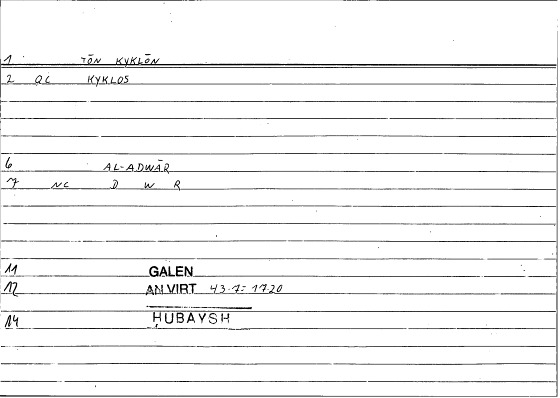 1 TŌN KYKLŌN
2 QC KYKLOS
6 AL-ADWĀR
7 NC D W R
11 GALEN
12 AN VIRT 43.7 = 1720
14 ḤUBAYSH